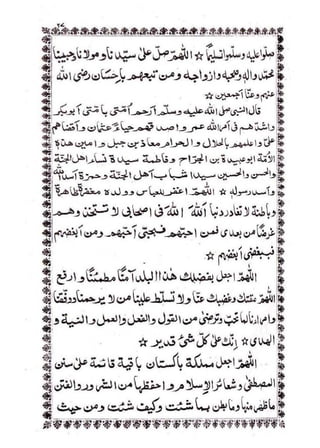 ٢٧
صلوا عليه وسلموا تسليما ☆ اللهم صل على سيدنا ومولانا وحبيبنا
محمد واله وصحبه وازواجه ومن تبعهم باحسان رضي الله
عنهم وعنا اجمعين ☆
قال النبي صلى الله عليه وسلم ارحم امتي بامتي ابوبكر
واشدهم في امر الله عمر واصدقهم حياء عثمان واقضاهم
علي واعلمهم بالحلال والحرام معاذ بن جبل وامين هذة
الأمة ابوعبيدة بن الجراح وفاطمة سيدة نساء اهل الجنة
والحسن والحسين سيدا شباب اهل الجنة وحمزة اسد الله
واسد رسوله ☆ اللهم اغفر للعباس وولده مغفرة ظاهرة
وباطنة لا تغادر ذنبا الله الله في اصحابي لا تتخذوهم
غرضا من بعدي فمن احبهم فبحبي احبهم ومن ابغضهم
فببغضي ابغضهم ☆
اللهم اجعل بفضلك هذا البلد آمنا مطمئنا وارفع
اللهم مقتك وغضبك عنا ولا تسلط علينا من لا يرحمنا ووفقنا
وامرنا لما تحب وترضى من القول والفعل والعمل والنية و
الهدى ☆ إنك على كل شيء قدير ☆
اللهم اجعل مملكة باكستان باقية قائمة على سنن
المصطفى وشعائر الإسلام واحفظها من الشرور والفتن
ما ظهر منها وما بطن بما شئت وكيف شئت ومن حيث